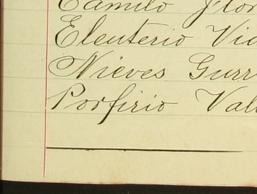 Camilo Flor
Eleuterio Vic
Nieves Gurr
Porfirio Vall